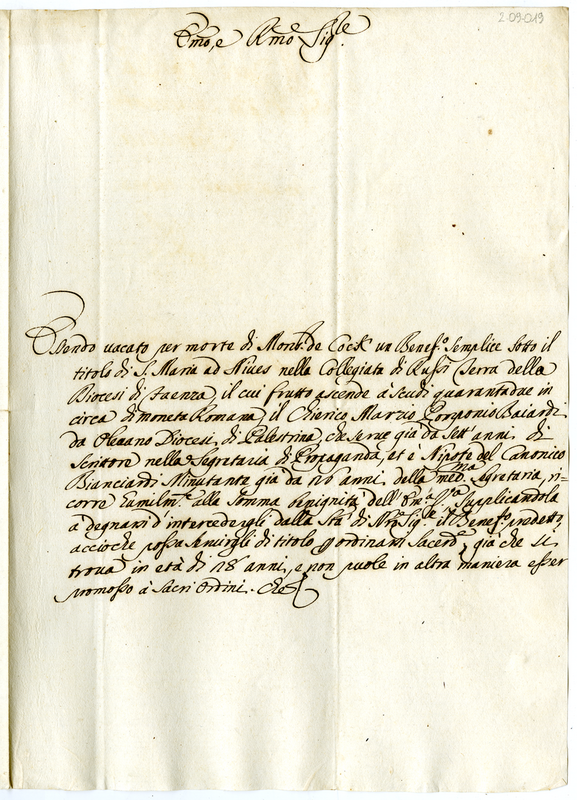 2-09-019
Emo, e Rmo Sigle.
Essendo vacato per morte di de Cock un Benef.o Semplice sotto il
titolo di S. Maria ad Nives nella Collegiata di Russi Terra della
Diocesi di Faenza, il cui frutto ascende à scudi quarantadue in
circa di moneta Romana, il Chierico Marzio Gorgonio Baiardi
da Olevano Diocesi di Palestrina, che serve già da sett'anni di
Scrittore nella Segretaria di Propaganda, et è Nipote del Canonico
Bianciardi Minutante già da 26 anni della med.ma Segretaria, ri-
corre Eumilm.e alla somma benignità dell'Em.a V.ra supplicandola
à degnarsi d'intercedergli dalla Stà di Nro Sig.le il Benef.o predetto,
accioche possa servirgli di titolo p ordinarsi Sacerd.e, già che si
trova in età di 28 anni, e non puole in altra maniera esser
promosso à Sacri Ordini. Che